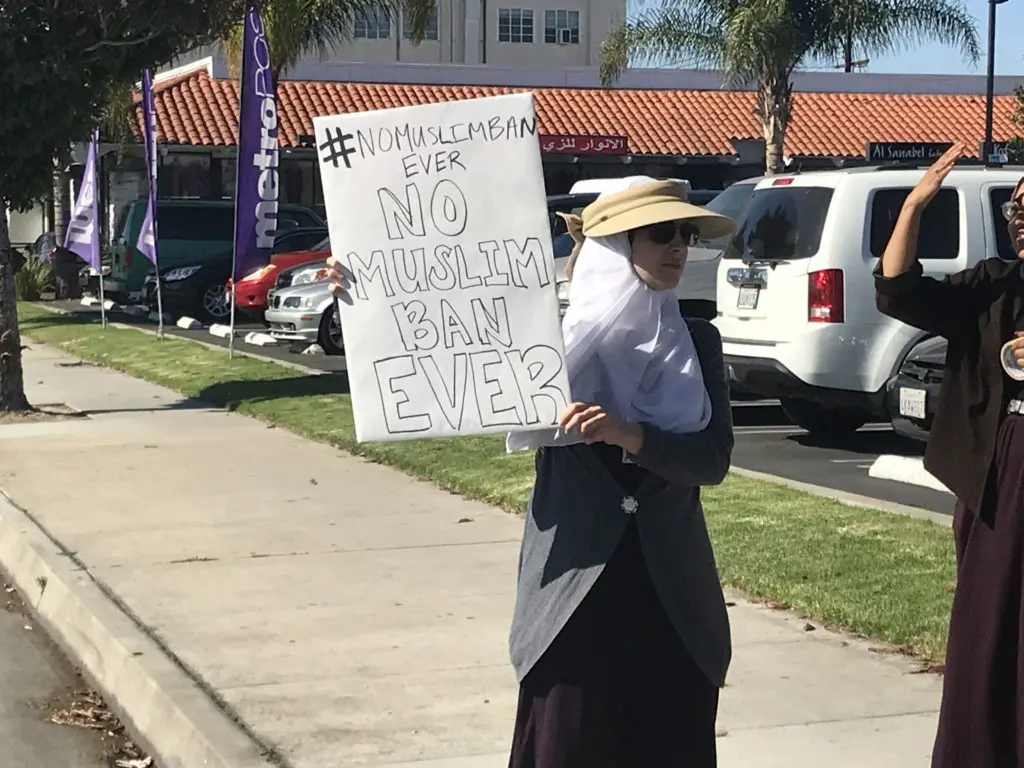 #NOMUSLIMBAN
EVER
NO
MUSLIM
BAN
EVER
metroPCS
الانوار للزي
Al Sanabel